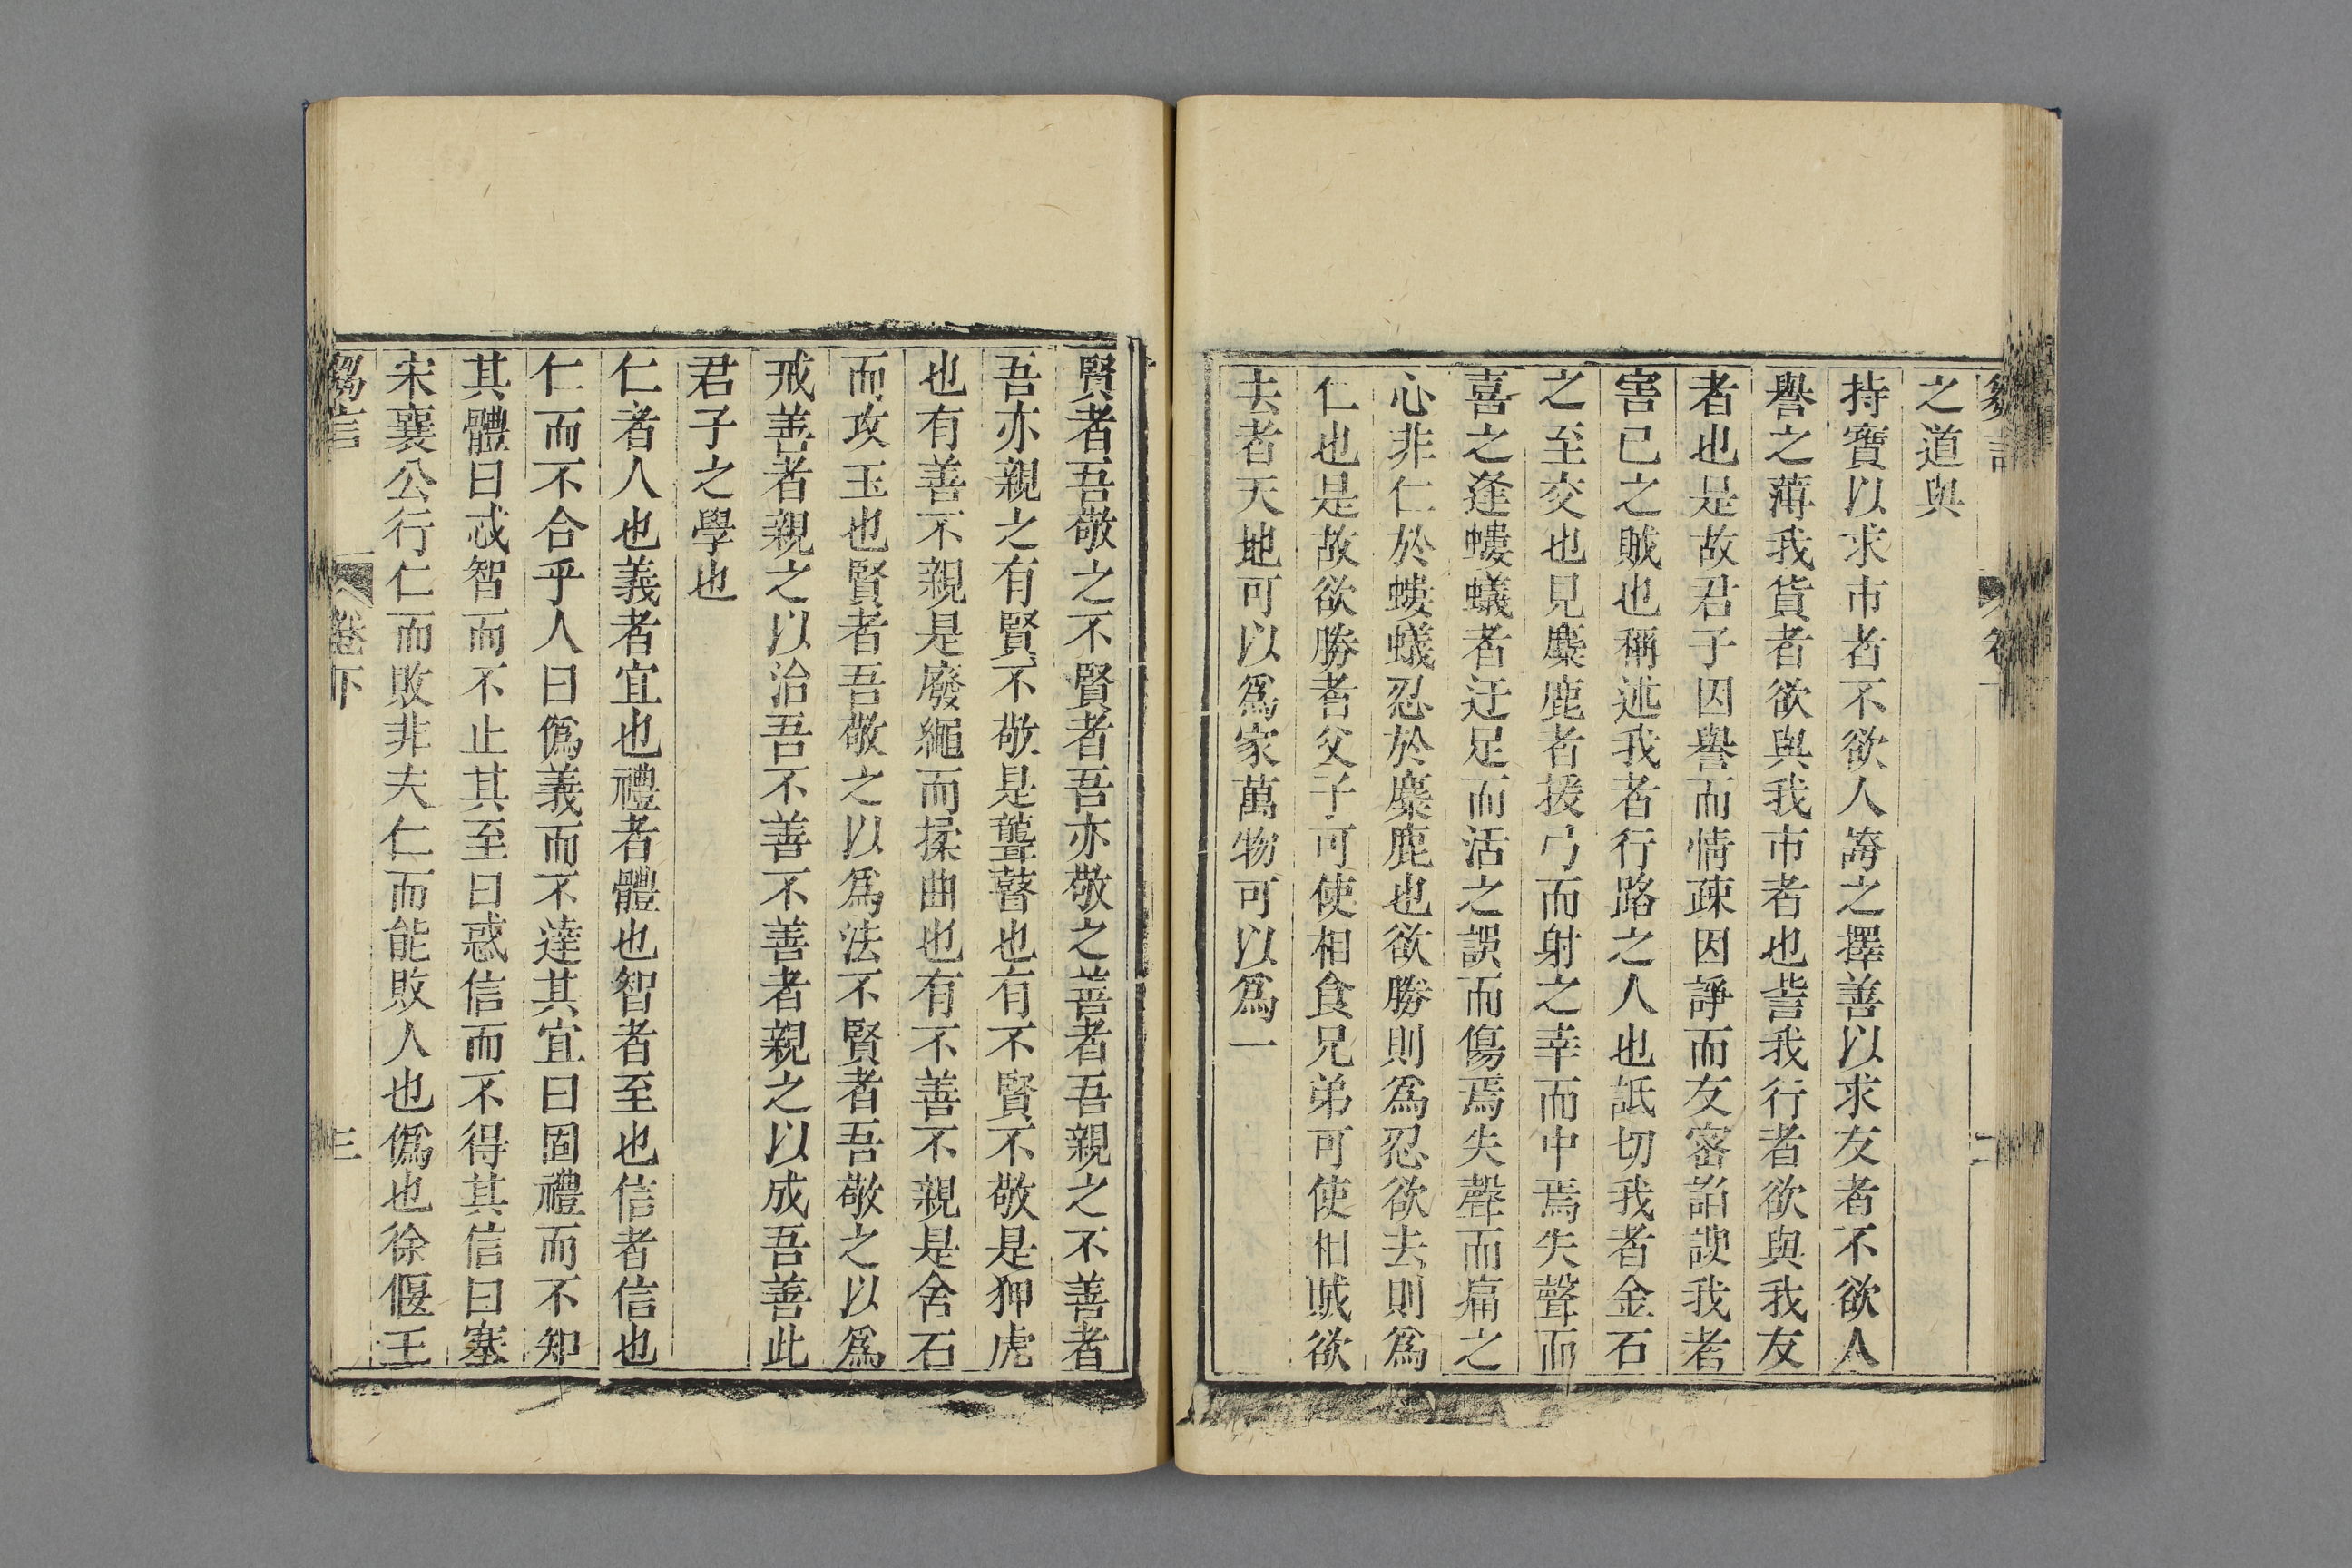 芻言
卷下
二
之道與
持寶以求市者不欲人謗之擇善以求友者不欲人
譽之薄我貨者欲與我市者也訾我行者欲與我友
者也是故君子因譽而情疎因諍而友密謟諛我者
害已之賊也稱述我者行路之人也詆切我者金石
之至交也見麋鹿者援弓而射之幸而中焉失聲而
喜之逢螻蟻者迂足而活之誤而傷焉失聲而痛之
心非仁於螻蟻忍於麋鹿也欲勝則爲忍欲去則爲
仁也是故欲勝者父子可使相食兄弟可使相賊欲
去者天地可以爲家萬物可以爲一
賢者吾敬之不賢者吾亦敬之善者吾親之不善者
吾亦親之有賢不敬是聾瞽也有不賢不敬是狎虎
也有善不親是廢繩而揉曲也有不善不親是舍石
而攻玉也賢者吾敬之以爲法不賢者吾敬之以爲
戒善者親之以治吾不善不善者親之以成吾善此
君子之學也
仁者人也義者宜也禮者體也智者至也信者信也
仁而不合乎人曰僞義而不達其宜曰固禮而不知
其體曰忒智而不止其至曰惑信而不得其信曰塞
宋襄公行仁而敗非夫仁而能敗人也僞也徐偃王
芻言
卷下
三